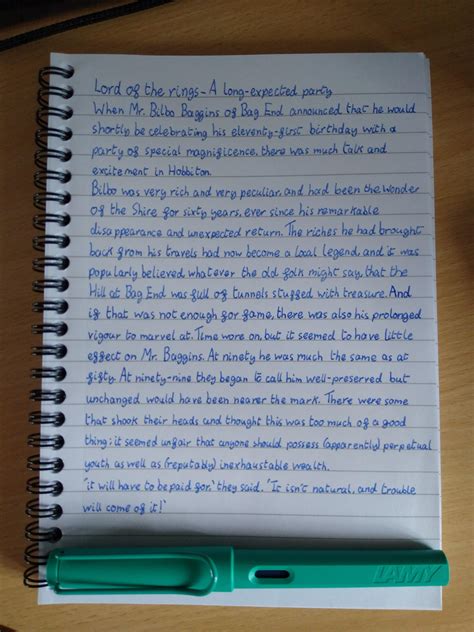 Lord of the rings - A long-expected party
When Mr. Bilbo Baggins of Bag End announced that he would
shortly be celebrating his eleventy-first birthday with a
party of special magnificence, there was much talk and
excitement in Hobbiton.
Bilbo was very rich and very peculiar, and had been the wonder
of the Shire for sixty years, ever since his remarkable
disappearance and unexpected return. The riches he had brought
back from his travels had now become a local legend, and it was
popularly believed, whatever the old folk might say, that the
Hill at Bag End was full of tunnels stuffed with treasure. And
if that was not enough for fame, there was also his prolonged
vigour to marvel at. Time wore on, but it seemed to have little
effect on Mr. Baggins. At ninety he was much the same as at
fifty. At ninety-nine they began to call him well-preserved but
unchanged would have been nearer the mark. There were some
that shook their heads and thought this was too much of a good
thing; it seemed unfair that anyone should possess (apparently) perpetual
youth as well as (reputably) inexhaustable wealth.
'it will have to be paid for,' they said. 'It isn't natural, and trouble
will come of it!'
LAMY